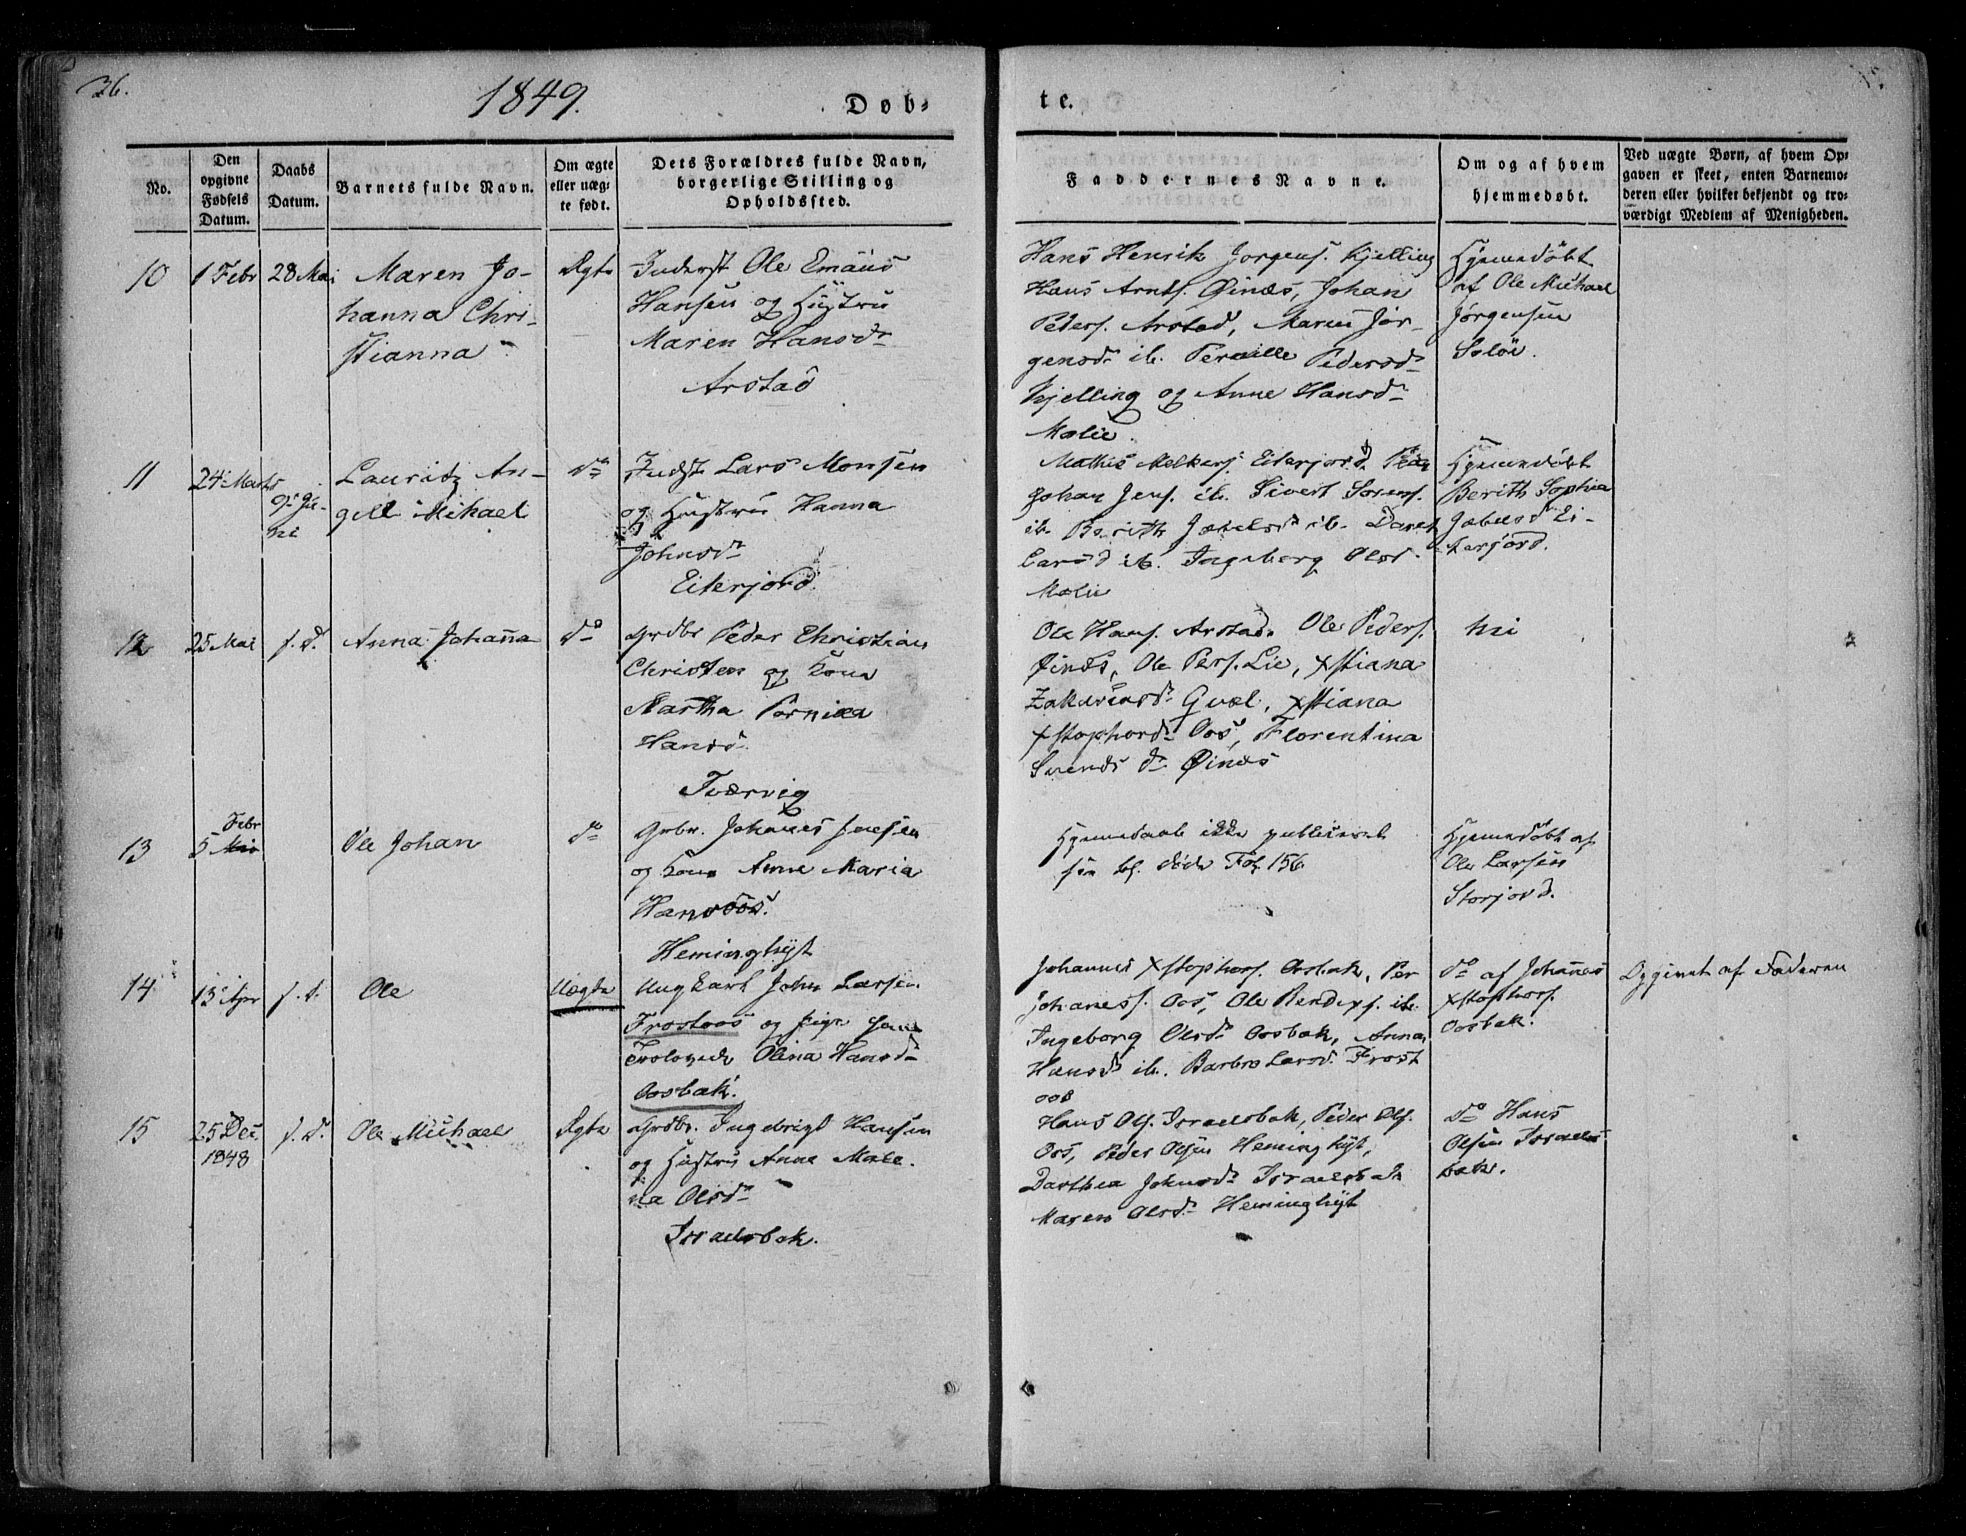 36.
1849.
Døb-
te.
No.
Den
opgivne
Fødsels
Datum.
Daabs
Datum.
Barnets fulde Navn.
Om ægte
eller uæg-
te født.
Dets Forældres fulde Navn,
borgerlige Stilling og
Opholdssted.
Faddernes Navne.
Om og af hvem
hjemmedøbt.
Ved uægte Børn, af hvem Op-
gaven er skeet, enten Barnemo-
deren eller hvilket bekjendt og tro-
værdigt Medlem af Menigheden.
10
1 Febr
28 Mai
Maren Jo-
hanna Chri-
stianna
Ægte
Inderst Ole Emäus
Hansen og Hustru
Maren Hansdr
Arstad
Hans Henrik Jørgens. Kjelling
Hans Arnts. Øinæs, Johan
Peders. Arstad, Maren Jør-
gensdr ib. Pernille Pedersdr
Kjelling og Anne Hansdr
Mælie.
Hjemedøbt
af Ole Michael
Jørgensen
Soløe.
11
24 Marts
9 Ju-
ni
Lauritz An-
gell Mihael
do
Indst Lars Monsen
og Hustru Hanna
Johnsdr
Eiterjord.
Mathis Melkers. Eiterjord. Peder
Johan Jens. ib. Sivert Sørens.
ib. Berith Jakobsdr ib. Daret
Larsd ib. Ingeborg Olsd.
Mælie
Hjemmedøbt
Berith Sophia
Jakobsd Ei-
terjord.
12
25 Mai
s. D.
Anna Johanna
do
Grdbr Peder Christian
Christens og Kone
Martha Pernilla
Hansd.
Tværvig
Ole Hans. Arstad. Ole Peders.
Øinæs, Ole Pers. Lie, Xstiana
Zakariasdr Gvæl, Xstiana
Xstophersdr Oos, Florentina
Svends dr Øinæs
nei
13
Febr
5 Mai
Ole Johan
do
Grbr. Johanes Jensen
og Kone Anne Maria
Hansdr.
Heminghyt
Hjemedaab ikke publiceret
see bl. døde Fol 156
Hjemedøbt af
Ole Larsen
Storjord.
14
13 Apr
s. D.
Ole
Uægte
Ungkarl John Larsen
Frostoos og Pige
Olina Hansdr
Oosbak.
Johannes Xstophers. Oosbak, Per
Johaness. Oos, Ole Bendixs. ib.
Ingeborg Olsdr Oosbak, Anna
Hansd ib. Barbro Larsd. Frost
oos
do af Johanes
Xstophers.
Oosbak.
Opgivet af Faderen
15
25 Dec.
1848
s. D.
Ole Michael
Ægte
Grdbr. Ingebrigt Hansen
og Hustru Anne Male-
na Olsdr
Israelsbak.
Hans Ols. Israelsbak, Peder Ols.
Oos, Peder Olsen Heminghyt,
Darthea Johnsdr Israelsbak
Maren Olsdr Heminghyt
do Hans
Olsen Israels-
bak.